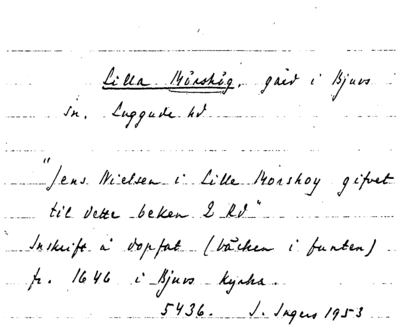 Lilla Mörshög, gård i Bjuvs
sn. Luggude hd
"Jens Nielsen i Lille Morshoy gifvet
til dette beken 2 Rd"
Inskrift å dopfat (bäcken i funten)
fr. 1646 i Bjuvs kyrka.
5436. I. Ingers 1953